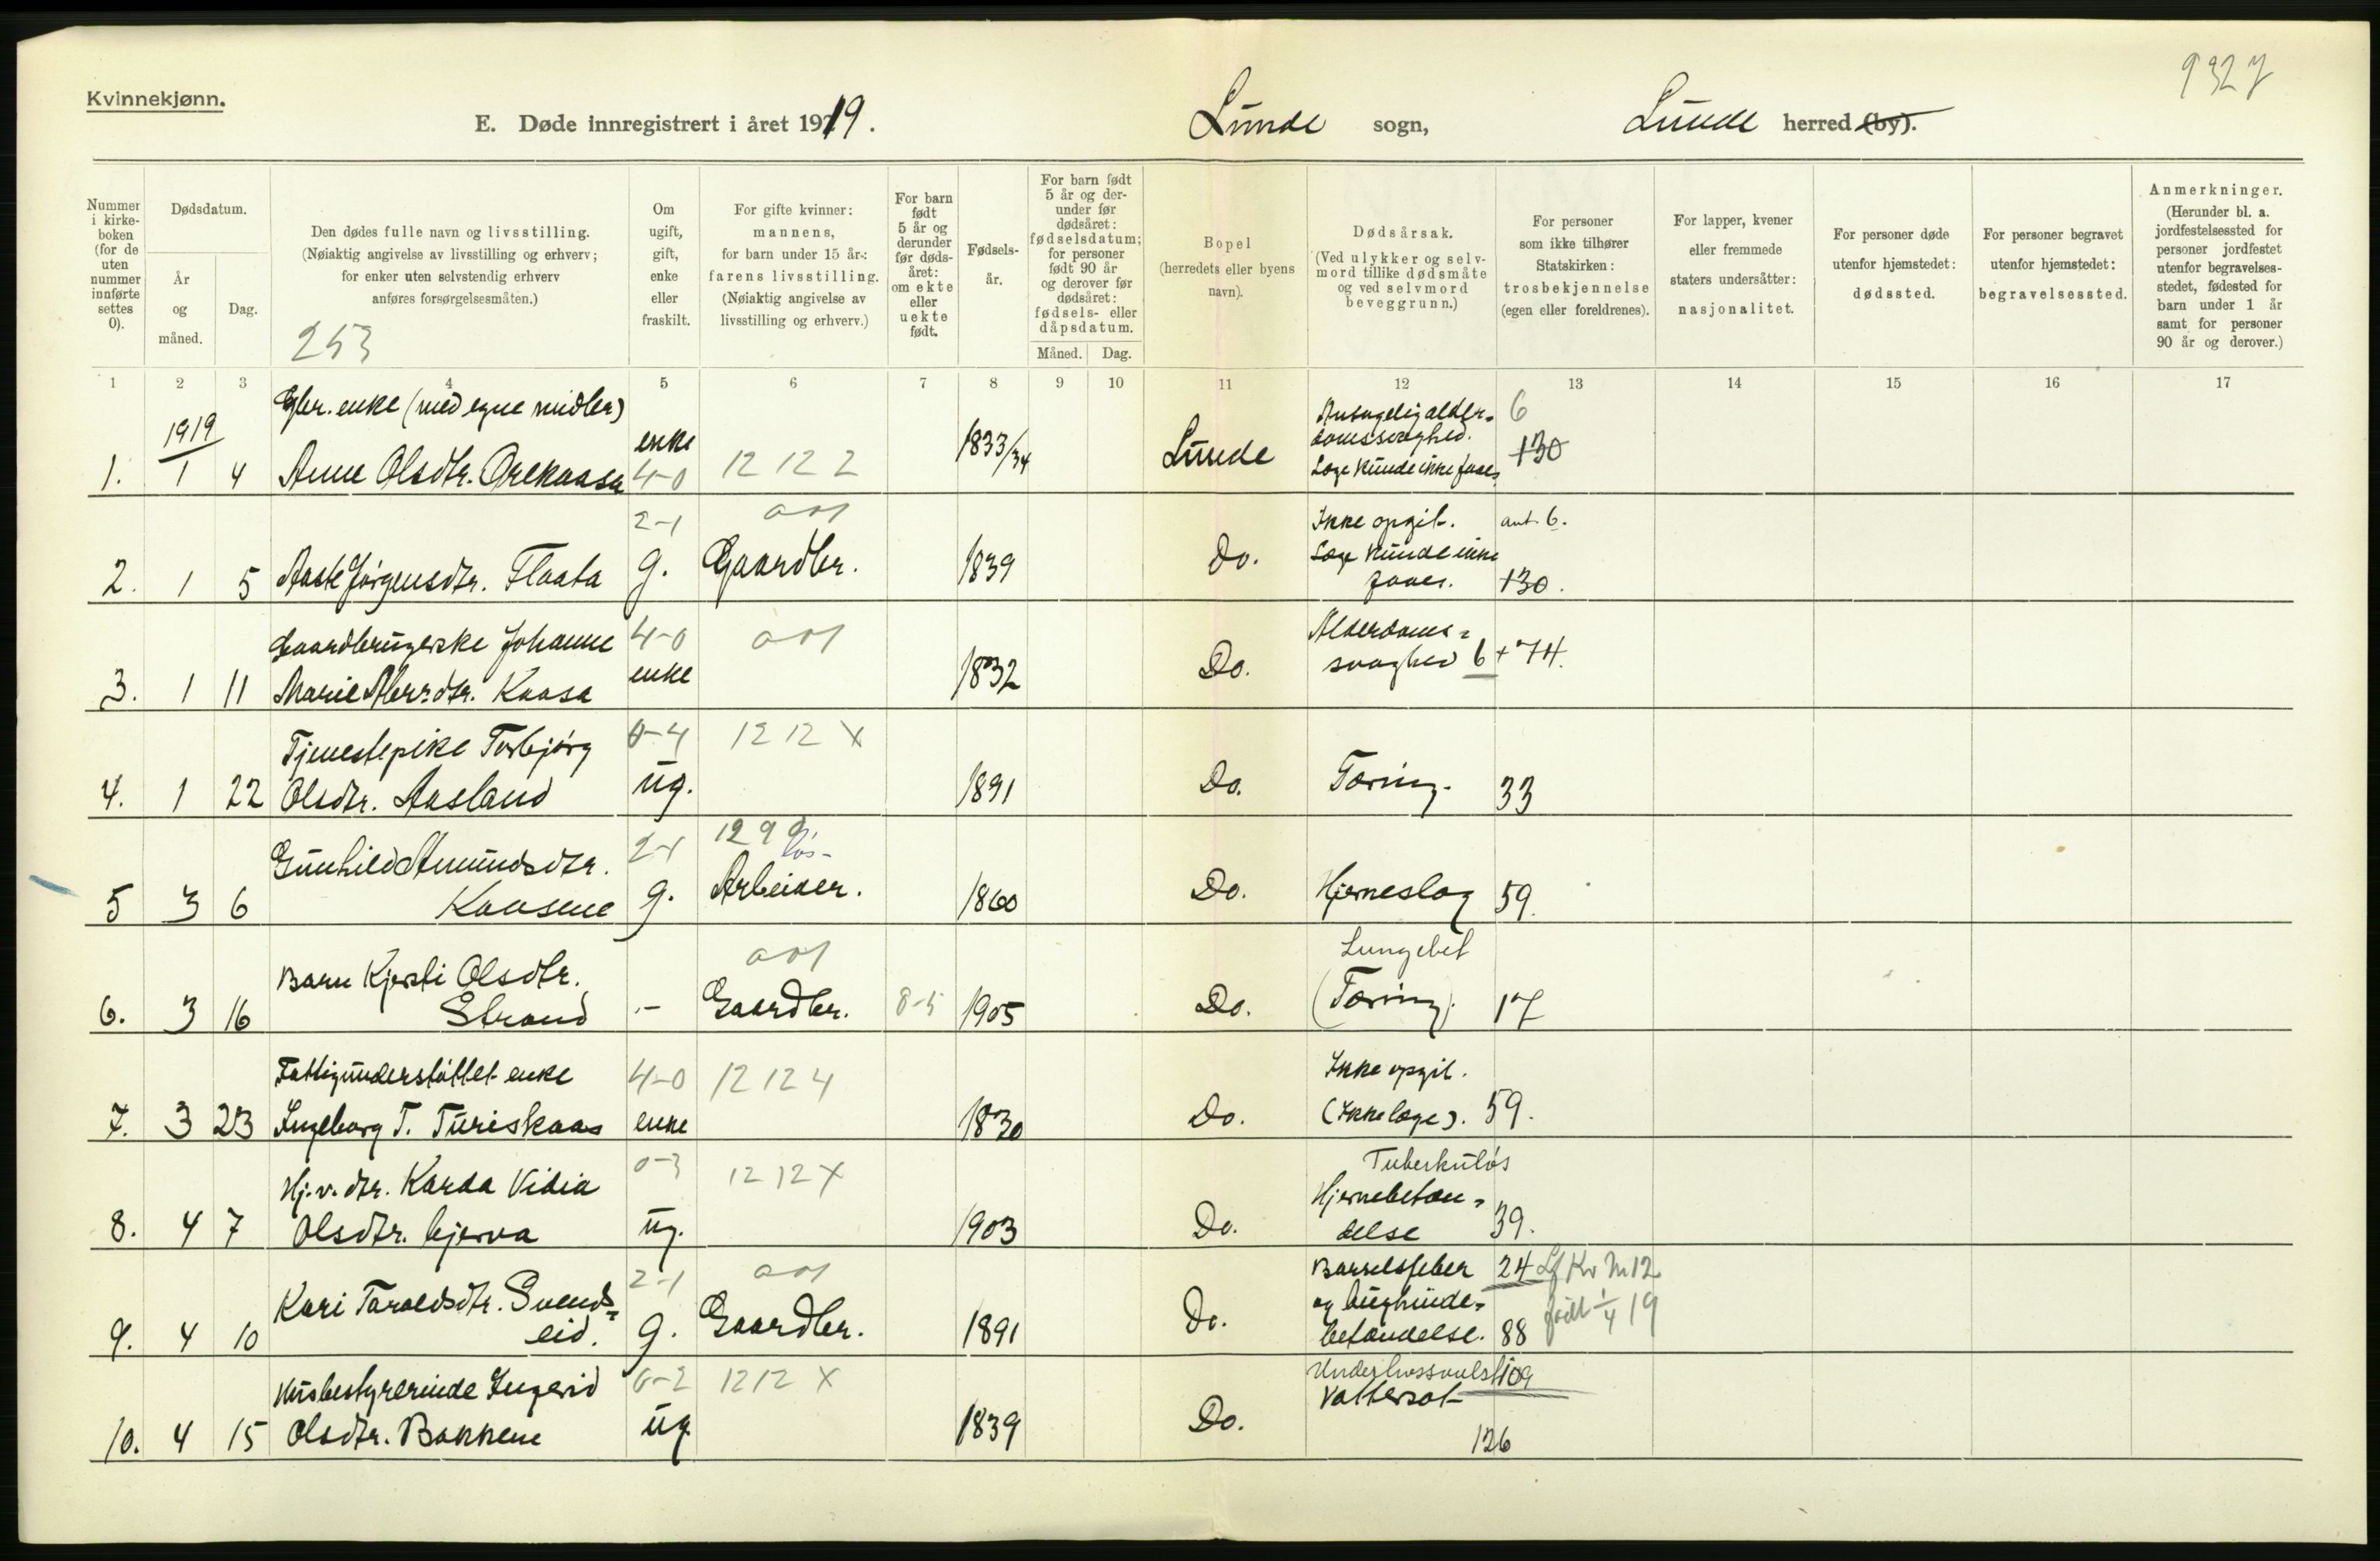 9327
Kvinnekjønn.
E. Døde innregistrert i året 1919.
Lunde sogn,
Lunde herred (by).
Nummer i kirkeboken (for de uten nummer innførte settes 0).
Dødsdatum.
År og måned.
Dag.
Den dødes fulle navn og livsstilling.
(Nøiaktig angivelse av livsstilling og erhverv;
for enker uten selvstendig erhverv
anføres forsørgelsesmåten.)
253
Om ugift, gift, enke eller fraskilt.
For gifte kvinner:
mannens,
for barn under 15 år:
farens livsstilling.
(Nøiaktig angivelse av
livsstilling og erhverv.)
For barn født 5 år og derunder før dødsåret: om ekte eller uekte født.
Fødselsår.
For barn født
5 år og der-
under før
dødsåret:
fødselsdatum;
for personer
født 90 år
og derover før
dødsåret:
fødsels- eller
dåpsdatum.
Måned. Dag.
Bopel
(herredets eller byens
navn).
Dødsårsak.
(Ved ulykker og selv-
mord tillike dødsmåte
og ved selvmord
beveggrunn.)
For personer
som ikke tilhører
Statskirken:
trosbekjennelse
(egen eller foreldrenes).
For lapper, kvener
eller fremmede
staters undersåtter:
nasjonalitet.
For personer døde
utenfor hjemstedet:
dødssted.
For personer begravet
utenfor hjemstedet:
begravelsessted.
Anmerkninger.
(Herunder bl. a.
jordfestelsessted for
personer jordfestet
utenfor begravelses-
stedet, fødested for
barn under 1 år
samt for personer
90 år og derover.)
1 2 3 4 5 6 7 8 9 10 11 12 13 14 15 16 17
1919
Gbr. enke (med egne midler)
1. 1 4 Anne Olsdtr. Orekaasa enke 4-0 12 12 2 1833/34 Lunde
Antagelig alder-
domssvaghed. 6
Læge kunde ikke faaes. 130
2-1
2. 1 5 Aaste Jörgensdtr. Flaata g. Gaardbr. 1839 Do.
Ikke opgit. ant. 6.
Læge kunde ikke
faaes. 130.
Gaardbrugerske Johanne 4-0
3. 1 11 Marie Abr.dtr. Kaasa enke 1832 Do.
Alderdoms-
svaghed 6 + 74.
Tjenestepike Torbjörg 0-4 12 12 X
4. 1 22 Olsdtr. Aasland ug. 1891 Do. Tæring. 33
Gunhild Amundsdtr. 2-1 12 9 9
lös-
5 3 6 Kaasene g. Arbeider. 1860 Do. Hjerneslag 59.
Barn Kjersti Olsdtr. Lungebet
6. 3 16 Strand - Gaardbr. 8-5 1905 Do. (Tæring). 17
Fattigunderstöttet enke 4-0 12 12 4 Ikke opgit.
7. 3 23 Ingeborg T. Turiskaas enke 1830 Do. (Ikke læge). 59.
Hj.v. dtr. Karda Vidia 0-3 12 12 X Tuberkulös
8. 4 7 Olsdtr. Gjerva ug. 1903 Do.
Hjernebetæn-
delse 39.
Kari Taraldsdtr. Svends- 2-1
9. 4 10 eid. g. Gaardbr. 1891 Do.
Barselsfeber 24 Lf Kv N 12
og bughinde- født 1/4 19
betændelse. 88
Husbestyrerinde Ingerid 0-2 12 12 X Underlivssvulst 109
Vattersot
10. 4 15 Olsdtr. Bakkene ug. 1839 Do. 126